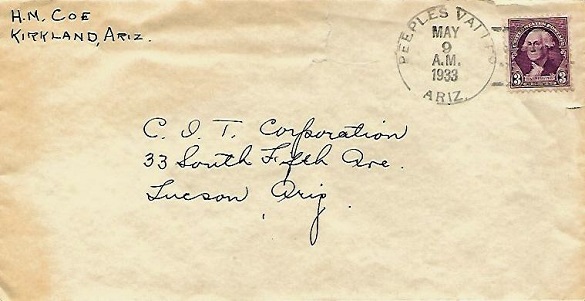 H.M. COE
KIRKLAND, ARIZ.
PEEPLES VALLEY
MAY
9
A.M.
1933
ARIZ.
3 3
C. I. T. Corporation
33 South Fifth Ave.
Tucson Ariz.